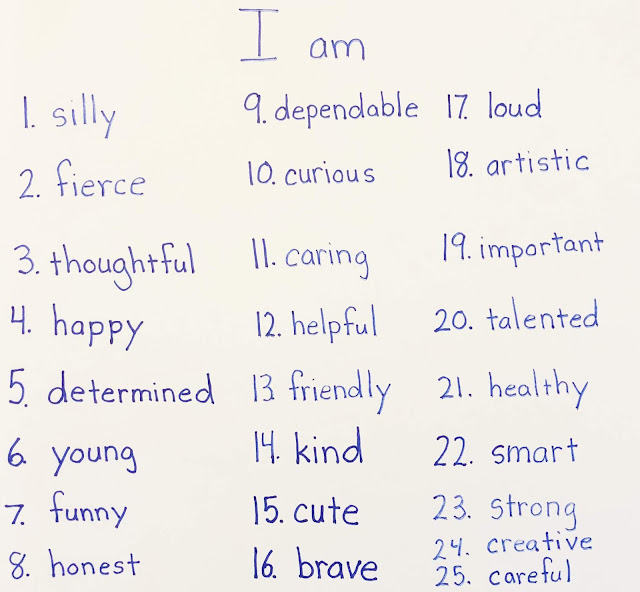 I am
1. silly
2. fierce
3. thoughtful
4. happy
5. determined
6. young
7. funny
8. honest
9. dependable
10. curious
11. caring
12. helpful
13. friendly
14. kind
15. cute
16. brave
17. loud
18. artistic
19. important
20. talented
21. healthy
22. smart
23. strong
24. creative
25. careful